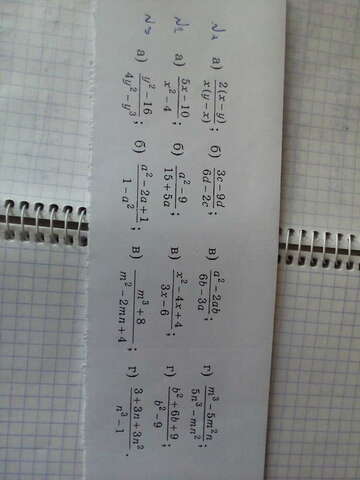 №1 а) 2(x−y)/x(y−x); б) (3c−9d)/(6d−2c); в) (a²−2ab)/(6b−3a); г) (m³−5m²n)/(5n³−mn²);
№2 а) (5x−10)/(x²−4); б) (a²−9)/(15+5a); в) (x²−4x+4)/(3x−6); г) (b²+6b+9)/(b²−9);
№3 а) (y²−16)/(4y²−y³); б) (a²−2a+1)/(1−a²); в) (m³+8)/(m²−2mn+4); г) (3+3n+3n²)/(n³−1).